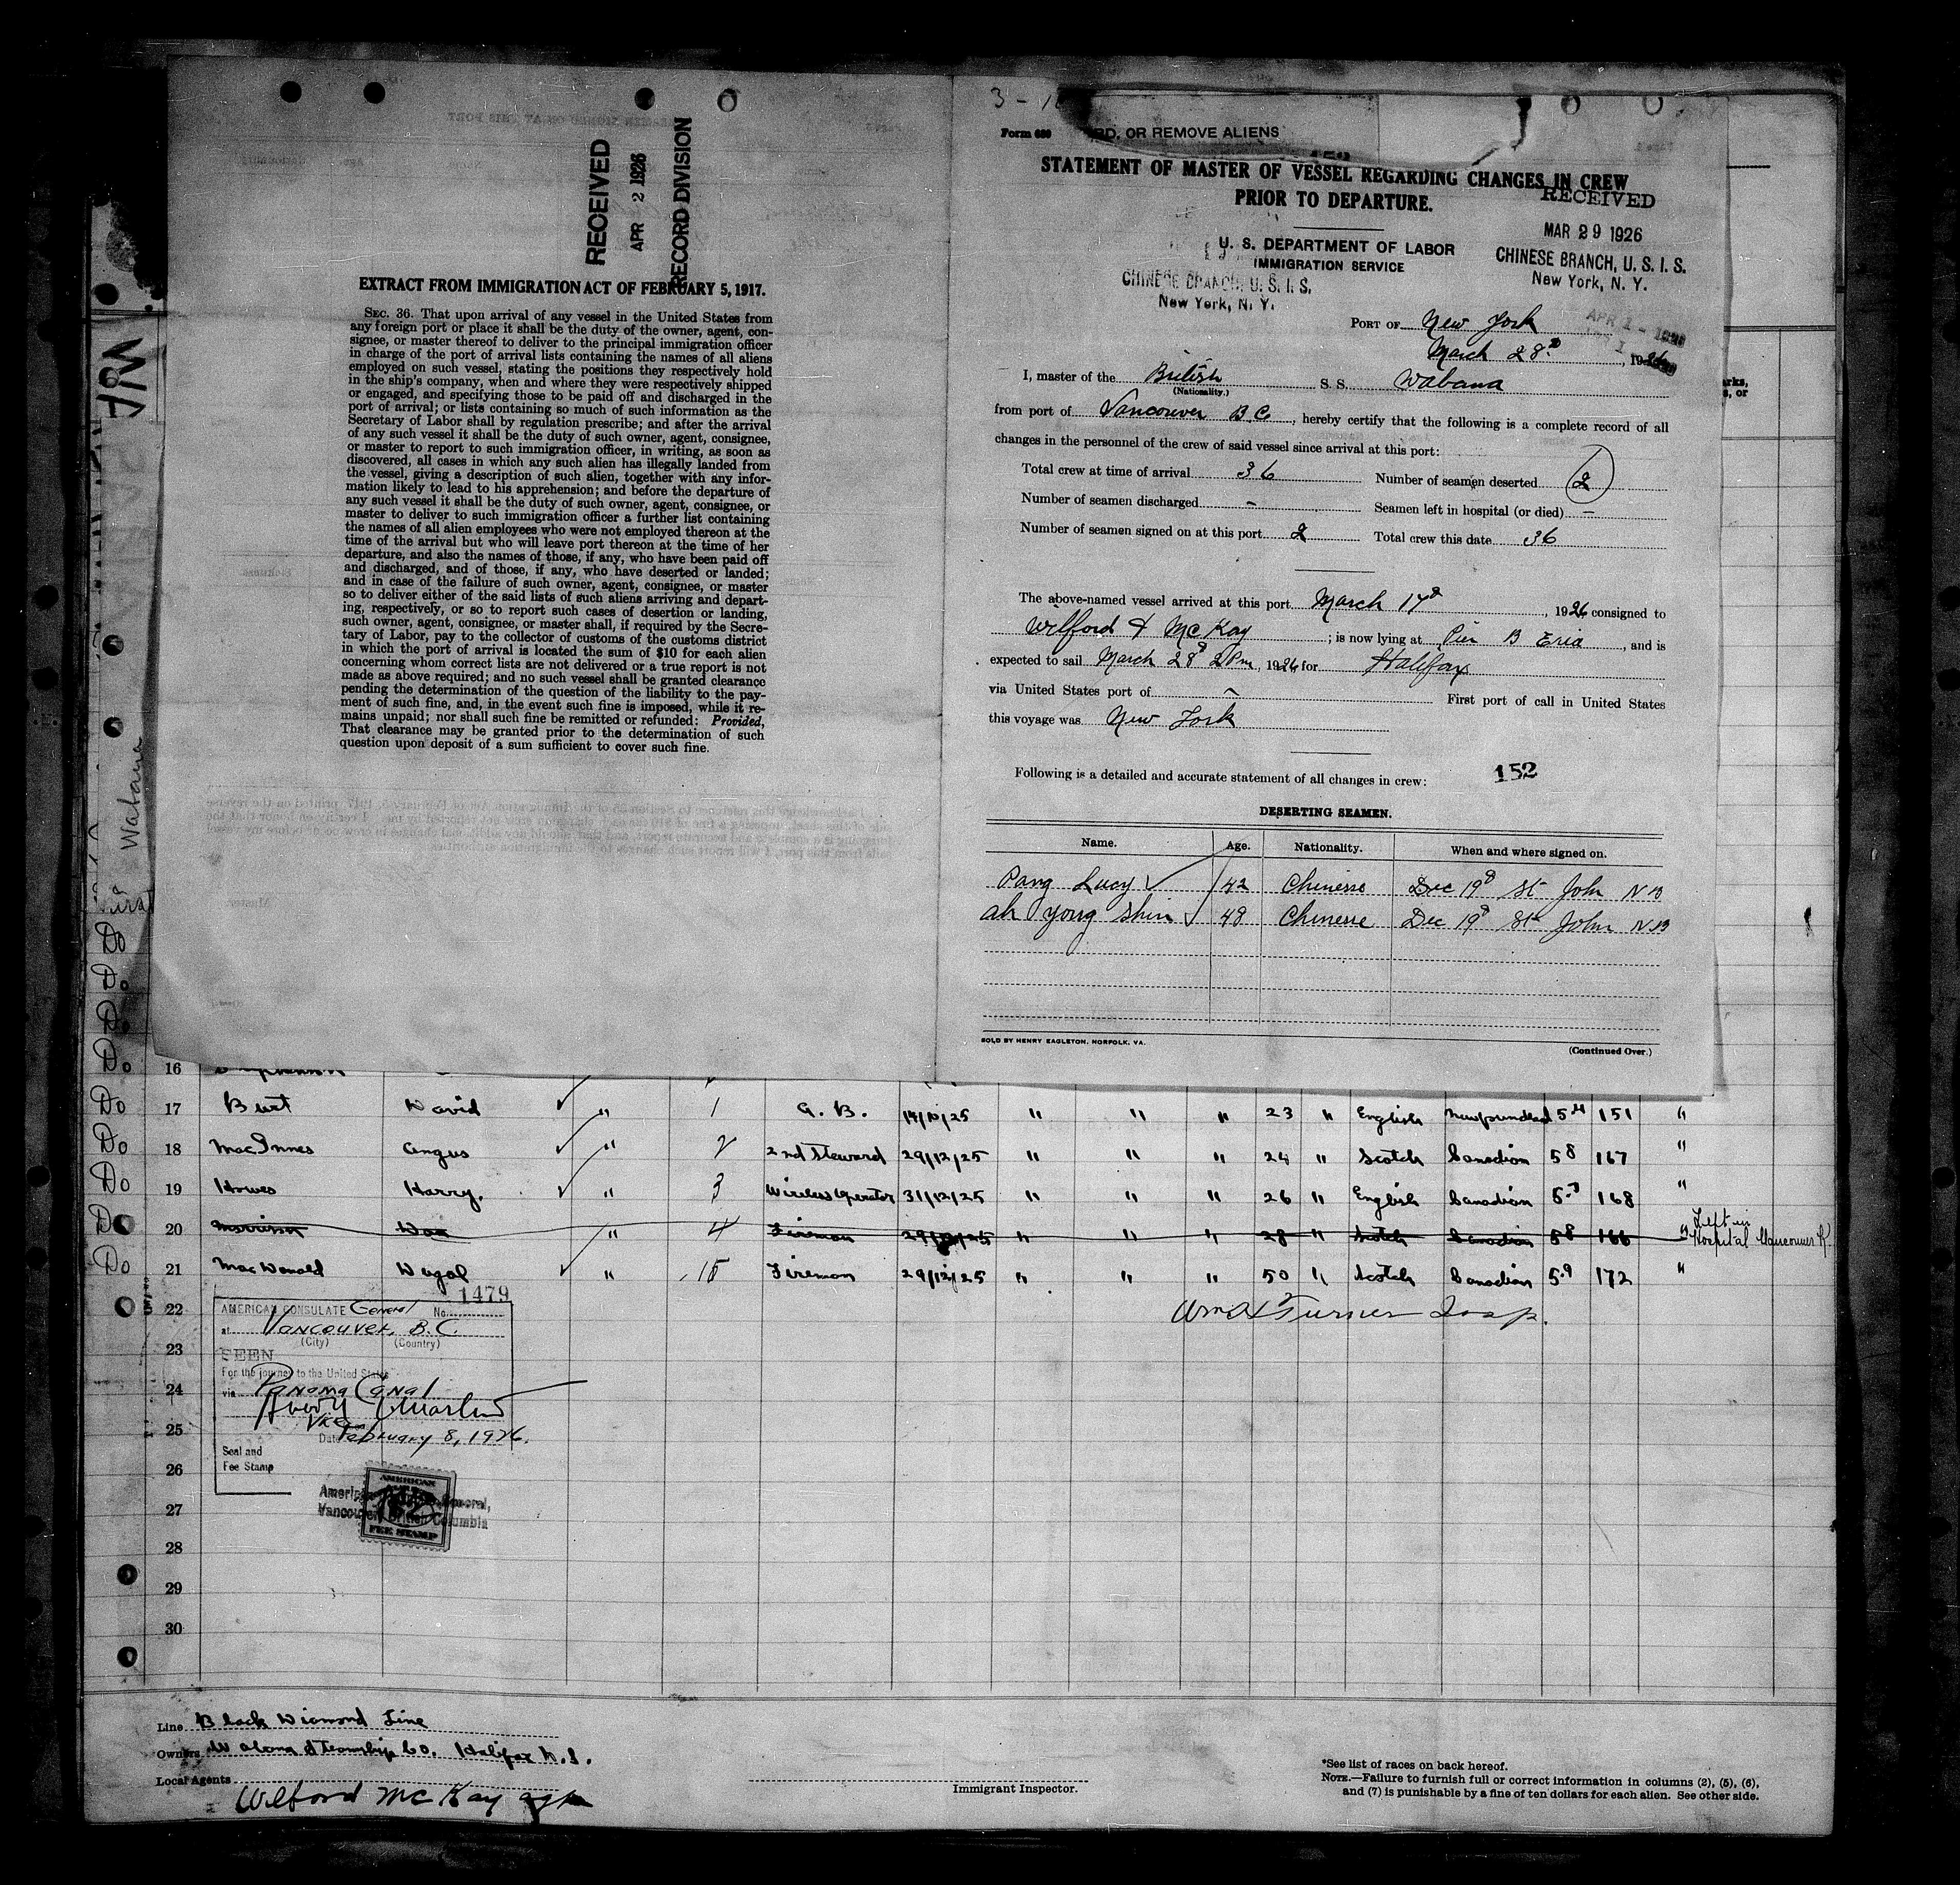 RECEIVED
APR 2 1926
RECORD DIVISION
EXTRACT FROM IMMIGRATION ACT OF FEBRUARY 5, 1917.
SEC. 36. That upon arrival of any vessel in the United States from
any foreign port or place it shall be the duty of the owner, agent, con-
signee, or master thereof to deliver to the principal immigration officer
in charge of the port of arrival lists containing the names of all aliens
employed on such vessel, stating the positions they respectively hold
in the ship's company, when and where they were respectively shipped
or engaged, and specifying those to be paid off and discharged in the
port of arrival; or lists containing so much of such information as the
Secretary of Labor shall by regulation prescribe; and after the arrival
of any such vessel it shall be the duty of such owner, agent, consignee,
or master to report to such immigration officer, in writing, as soon as
discovered, all cases in which any such alien has illegally landed from
the vessel, giving a description of such alien, together with any infor-
mation likely to lead to his apprehension; and before the departure of
any such vessel it shall be the duty of such owner, agent, consignee, or
master to deliver to such immigration officer a further list containing
the names of all alien employees who were not employed thereon at the
time of the arrival but who will leave port thereon at the time of her
departure, and also the names of those, if any, who have been paid off
and discharged, and of those, if any, who have deserted or landed;
and in case of the failure of such owner, agent, consignee, or master
so to deliver either of the said lists of such aliens arriving and depart-
ing, respectively, or so to report such cases of desertion or landing,
such owner, agent, consignee, or master shall, if required by the Secre-
tary of Labor, pay to the collector of customs of the customs district
in which the port of arrival is located the sum of $10 for each alien
concerning whom correct lists are not delivered or a true report is not
made as above required; and no such vessel shall be granted clearance
pending the determination of the question of the liability to the pay-
ment of such fine, and, in the event such fine is imposed, while it re-
mains unpaid; nor shall such fine be remitted or refunded: Provided,
That clearance may be granted prior to the determination of such
question upon deposit of a sum sufficient to cover such fine.
Form 689 RD, OR REMOVE ALIENS
STATEMENT OF MASTER OF VESSEL REGARDING CHANGES IN CREW
PRIOR TO DEPARTURE.
RECEIVED
MAR 29 1926
CHINESE BRANCH, U. S. I. S.
New York, N. Y.
U. S. DEPARTMENT OF LABOR
IMMIGRATION SERVICE
CHINESE BRANCH, U. S. I. S.
New York, N. Y.
PORT OF New York
March 28th, 1926
I, master of the British S. S. Wabana
(Nationality.)
from port of Vancouver B.C., hereby certify that the following is a complete record of all
changes in the personnel of the crew of said vessel since arrival at this port:
Total crew at time of arrival 36 Number of seamen deserted 2
Number of seamen discharged - Seamen left in hospital (or died) -
Number of seamen signed on at this port 2 Total crew this date 36
The above-named vessel arrived at this port March 17th, 1926 consigned to
Wilford & McKay; is now lying at Pier B Erie, and is
expected to sail March 28th 2 Pm, 1926 for Halifax
via United States port of First port of call in United States
this voyage was New York
Following is a detailed and accurate statement of all changes in crew: 152
DESERTING SEAMEN.
Name. Age. Nationality. When and where signed on.
Pang Lucy 42 Chinesse Dec 19th St John NB
Ah Yong Shin 48 Chinesse Dec 19th St John NB
SOLD BY HENRY EAGLETON, NORFOLK, VA. (Continued Over.)
Wabana
Do
Do
Do
Do 16
Do 17 Burt David " 1 A. B. 14/10/25 " " " 23 " English Newfoundland 5 4 151 "
Do 18 MacInnes Angus " 2 2nd Steward 29/12/25 " " " 24 " Scotch Canadian 5 8 167 "
Do 19 Howes Harry. " 3 Wireless Operator 31/12/25 " " " 26 " English Canadian 5.7 168 "
Do 20 Morrison Dan " 4 Fireman 29/12/25 " " " 28 " Scotch Canadian 5 8 166 " Left in Hospital Vancouver
Do 21 MacDonald Dugal " 15 Fireman 29/12/25 " " " 50 " Scotch Canadian 5.9 172 "
22
Wm Turner Insp.
AMERICAN CONSULATE General No. 1479
at Vancouver, B.C.
(City) (Country)
23
SEEN
For the journey to the United States
24
via Panama Canal
Vice
25
Date February 8, 1926.
Seal and
Fee Stamp
26
AMERICAN
American Consulate General,
Vancouver, British Columbia
FEE STAMP
27
28
29
30
Line Black Diamond Line
Owners Wabana Steamship Co. Halifax N.S.
Local Agents
Wilford McKay agts
Immigrant Inspector.
*See list of races on back hereof.
NOTE.—Failure to furnish full or correct information in columns (2), (5), (6),
and (7) is punishable by a fine of ten dollars for each alien. See other side.